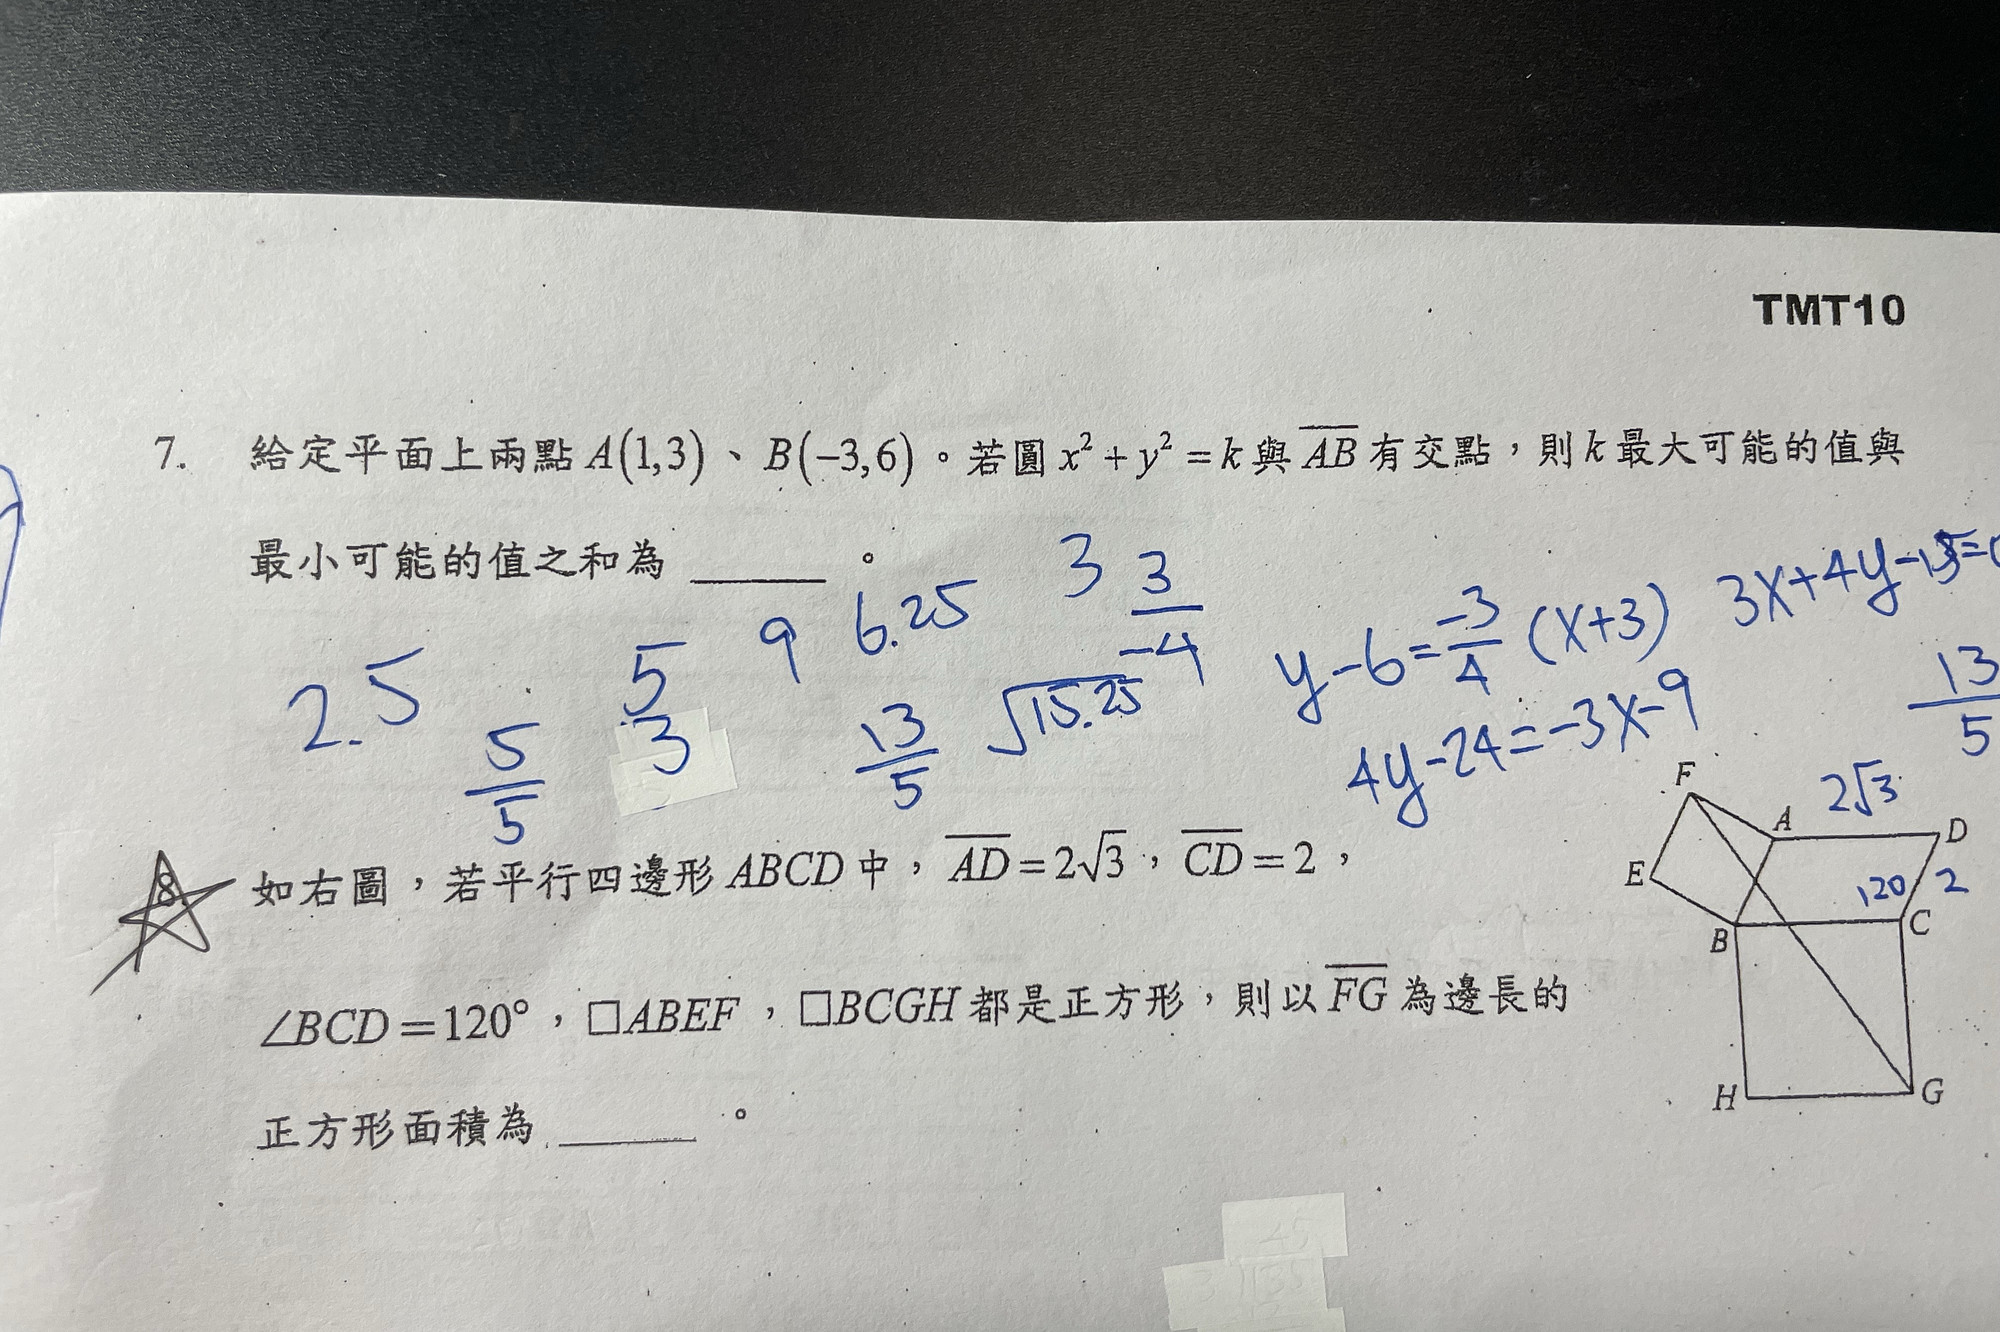 TMT10
7. 給定平面上兩點 A(1,3)、B(−3,6)。若圓 x² + y² = k 與 AB 有交點，則 k 最大可能的值與
最小可能的值之和為 ______。
2.5
5/5
5
3
9
6.25
13/5
3
3/-4
√15.25
y-6=-3/4(x+3)
4y-24=-3x-9
3x+4y-15=0
13/5
8. 如右圖，若平行四邊形 ABCD 中，AD = 2√3，CD = 2，
∠BCD = 120°，□ABEF，□BCGH 都是正方形，則以 FG 為邊長的
正方形面積為 ______。
F
2√3
A
D
E
120
2
B
C
H
G